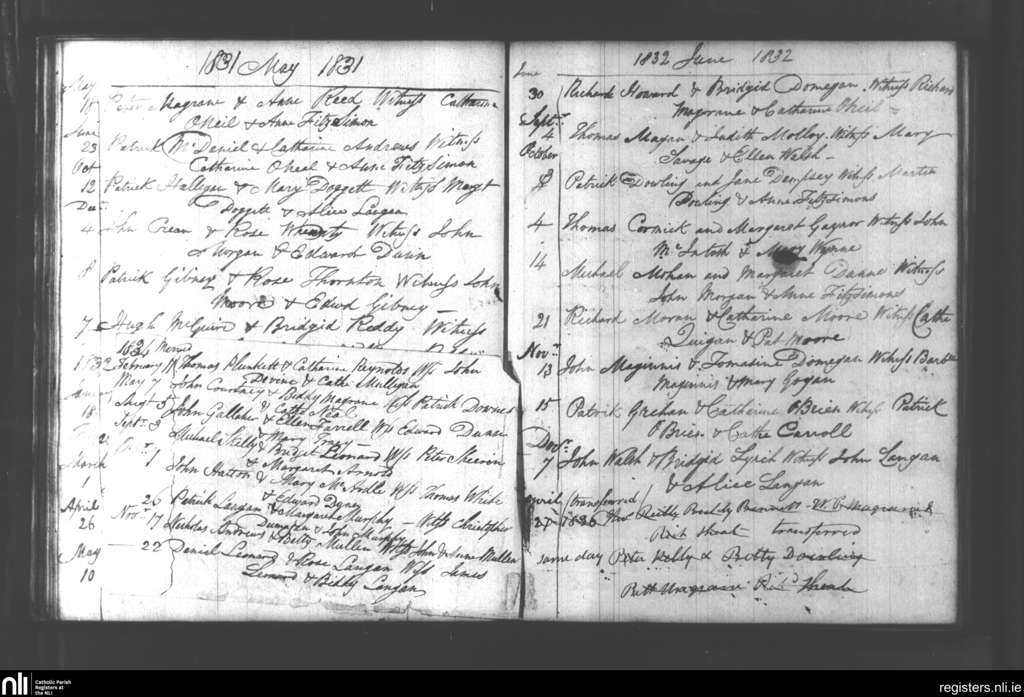 1831 May 1831
May
11 Peter Magrane & Anne Reed Witness Catharine
ONeil & Anne FitzSimon
June
23 Patrick McDaniel & Catharine Andrews Witness
Catharine ONeal & Anne FitzSimon
Oct
12 Patrick Halligan & Mary Doggett Witness Margt
Doggett & Alice Langan
Decr
4 John Crean & Rose Witness John
Morgan & Edward Dunn
8 Patrick Gibney & Rose Thornton Witness John
Moore & Edwd Gibney
7 Hugh McGuire & Bridgid Reddy Witness
1834
February Thomas Plunkett & Catharine Reynolds Ws John
Devine & Cathe Mulligan
May 7 John Courtney & Biddy Magrane Ws Patrick Downes
& Cathe Neal
Augt 5 John Gallaher & Ellen Farrell Ws Edward Dunn
& Mary Tracy
Septr 3 Michael Skelly & Bridget Leonard Ws Peter
& Margaret Arnold
1 John Hatton & Mary McArdle Ws Thomas White
& Edward Digney
26 Patrick Langan & Margaret Murphy Witts Christopher
& John Murphy
Novr 17 Nicholas Andrews & Betty Mullen Wss John & Anne Mullen
22 Daniel Leonard & Rose Langan Wss James
Leonard & Biddy Langan
18
March
1
April
26
May
10
1832 June 1832
June
30 Richard Howard & Bridgid Donegan Witness Richard
Magrane & Catharine ONeil
Septr
4 Thomas Magan & Judith Molloy Witss Mary
Savage & Ellen Walsh
October
3 Patrick Dowling and Jane Dempsey Witss Martin
Dowling & Anne FitzSimons
4 Thomas Cormick and Margaret Gaynor Witness John
McIntosh & Mary Wynne
14 Michael Mohan and Margaret Dunne Witness
John Morgan & Anne FitzSimons
21 Richard Moran & Catherine Moore Witss Cathe
Quigan & Pat Moore
Novr
13 John Maginnis & Tomasine Donegan Witss
Maginnis & Mary Gogan
15 Patrick Grehan & Catharine OBrien Witss Patrick
OBrien & Cathe Carroll
Decr
7 John Walsh & Bridgid Lynch Witss John Langan
& Alice Langan
April (transferred)
27 1836 Reilly Bennett
transferred
same day Peter Kelly & Betty Dowling
Magrane
nli
Catholic Parish
Registers at
the NLI
registers.nli.ie